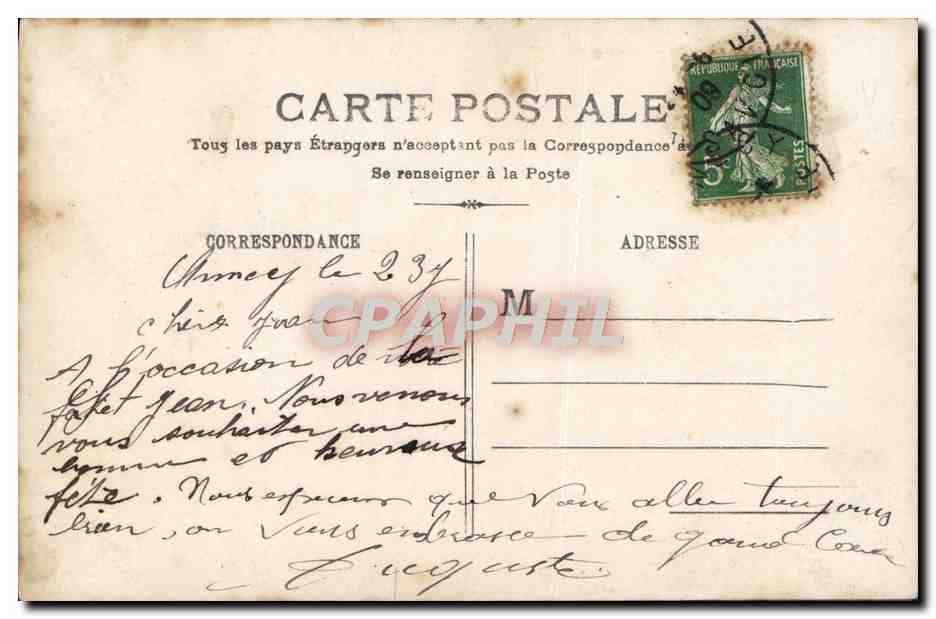 CARTE POSTALE
RÉPUBLIQUE FRANÇAISE
POSTES
5c
09
Tous les pays Étrangers n'acceptent pas la Correspondance a
Se renseigner à la Poste
CORRESPONDANCE
ADRESSE
M
CPAPHIL
le 23
A l'occasion de la
Jean. Nous venons
vous souhaiter une
bonne et heureuse
fête. Nous esperons que vous aller toujours
bien, on vous embrasse de grand Coeur
Auguste